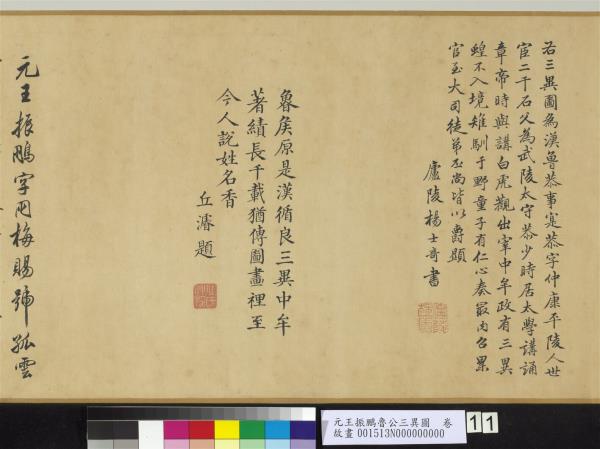 右三異圖為漢魯恭事寔恭字仲康平陵人世
宦二千石父為武陵太守恭少時居太學講誦
章帝時與講白虎觀出宰中牟政有三異
蝗不入境雉馴于野童子有仁心奏最内召累
官至大司徒弟丕尚皆以爵顯
廬陵楊士奇書
魯侯原是漢循良三異中牟
著績長千載猶傳圖畫裡至
今人說姓名香
丘濬題
元王振鵬字朋梅賜號孤雲
元王振鵬魯公三異圖 卷
故畫 001513N000000000
11